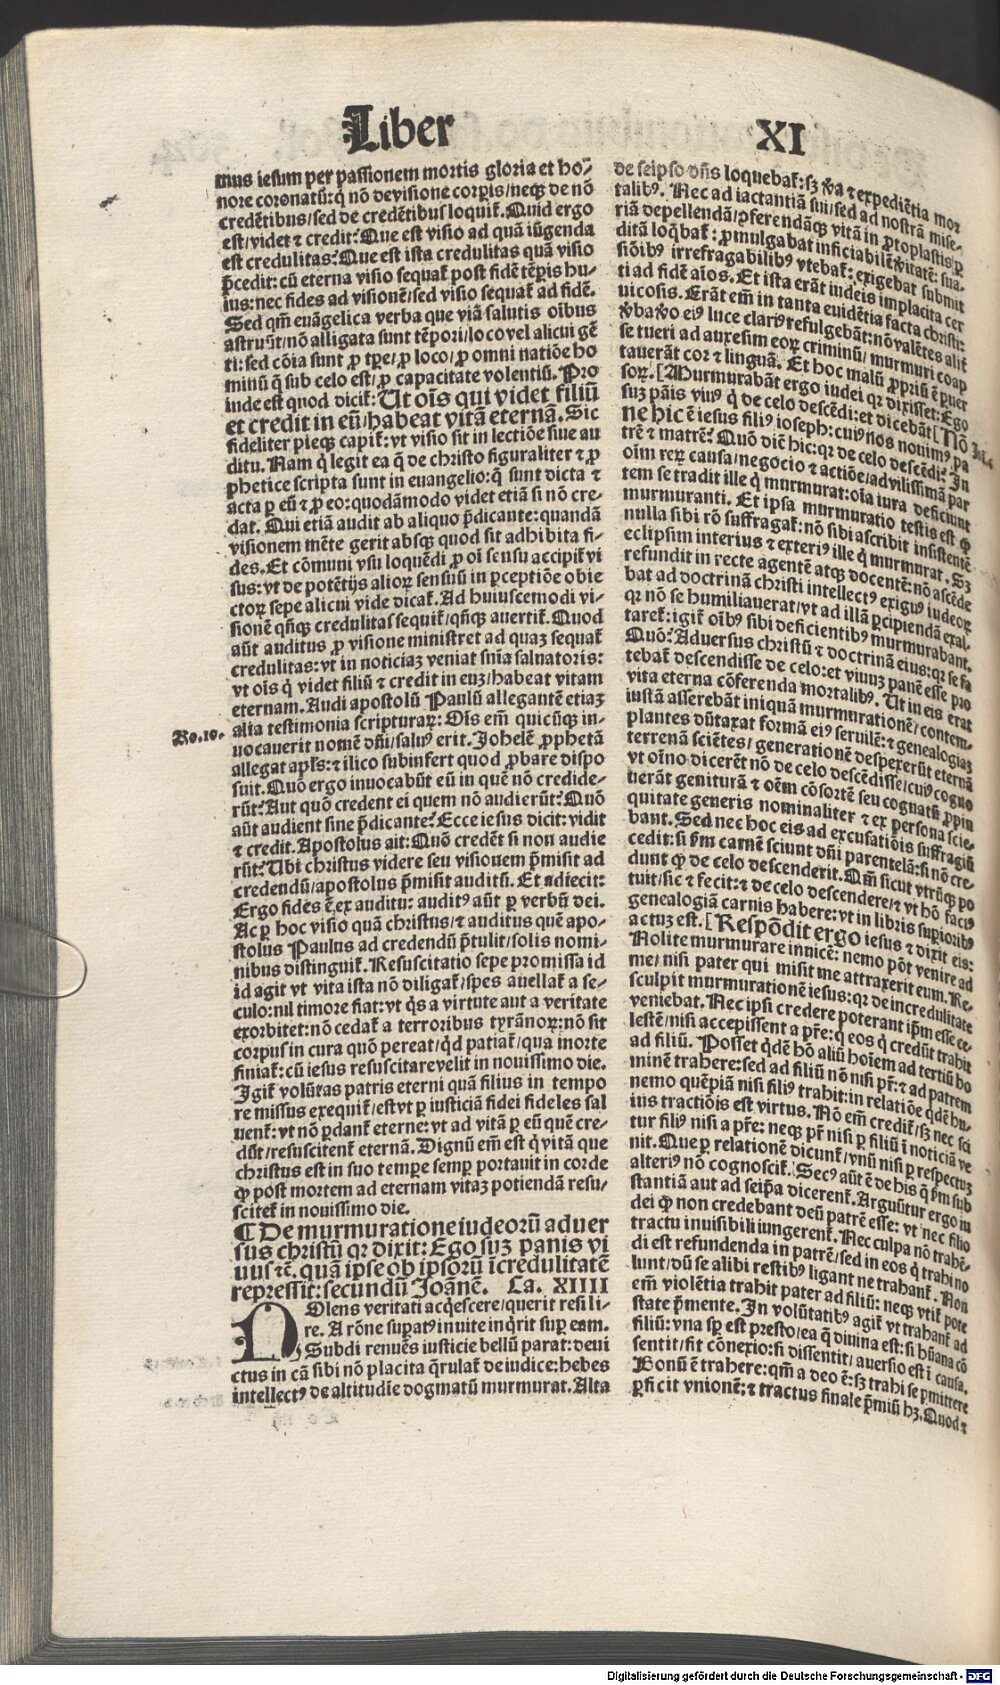 Liber XI
mus iesum per passionem mortis gloria et ho-
nore coronatū: q̄ nō de visione corpīs/neqꝫ de nō
credētibus/sed de credētibus loquit̄. Quid ergo
est/videt ⁊ credit? Que est visio ad quā iūgenda
est credulitas? Que est ista credulitas quā visio
p̄cedit: cū eterna visio sequat̄ post fidē tēpīs hu-
ius: nec fides ad visionē/sed visio sequat̄ ad fidē.
Sed qm̄ euāgelica verba que viā salutis oībus
astruūt/nō alligata sunt tēpori/loco vel alicui gē
ti: sed cōia sunt ꝓ tpe/ꝓ loco/ꝓ omni natiōe ho
minū q̄ sub celo est/ꝓ capacitate volentiū. Pro
inde est quod dicit̄: Ut oīs qui videt filiū
et credit in eū/habeat vitā eternā. Sic
fideliter pieqꝫ capit̄: vt visio sit in lectiōe siue au
ditu. Nam q̄ legit ea q̄ de christo figuraliter ⁊ ꝓ
phetice scripta sunt in euangelio: q̄ sunt dicta ⁊
acta ꝑ eū ⁊ ꝓ eo: quodāmodo videt etiā si nō cre-
dat. Qui etiā audit ab aliquo p̄dicante: quandā
visionem mēte gerit absqꝫ quod sit adhibita fi-
des. Et cōmuni vsu loquēdi ꝓ oī sensu accipit̄ vi
sus: vt de potētijs alioꝝ sensuū in ꝑceptiōe obie
ctoꝝ sepe alicui vide dicat̄. Ad huiuscemodi vi-
sionē qn̄qꝫ credulitas sequit̄/qn̄qꝫ auertit̄. Quod
aūt auditus ꝓ visione ministret ad quaꝫ sequat̄
credulitas: vt in noticiaꝫ veniat snīa saluatoris:
vt oīs q̄ videt filiū ⁊ credit in euꝫ/habeat vitam
eternam. Audi apostolū Paulū allegantē etiaꝫ
Ro.10. alta testimonia scripturaꝝ: Oīs em̄ quicūqꝫ in-
uocauerit nomē dn̄i/saluꝰ erit. Johelē ꝓphetā
allegat apl̄s: ⁊ ilico subinfert quod ꝓbare dispo
suit. Quō ergo inuocabūt eū in quē nō credide-
rūt? Aut quō credent ei quem nō audierūt? Quō
aūt audient sine p̄dicante? Ecce iesus dicit: vidit
⁊ credit. Apostolus ait: Quō credēt si non audie
rūt? Ubi christus videre seu visionem p̄misit ad
credendū/apostolus p̄misit auditū. Et adiecit:
Ergo fides ē ex auditu: auditꝰ aūt ꝑ verbū dei.
Ac ꝑ hoc visio quā christus/⁊ auditus quē apo-
stolus Paulus ad credendū p̄tulit/solis nomi-
nibus distinguit̄. Resuscitatio sepe promissa id
id agit vt vita ista nō diligat̄/spes auellat̄ a se-
culo: nil timore fiat: vt q̄s a virtute aut a veritate
exorbitet: nō cedat̄ a terroribus tyrānoꝝ: nō sit
corpus in cura quō pereat/q̄d patiat̄/qua morte
finiat̄: cū iesus resuscitare velit in nouissimo die.
Igit̄ volūtas patris eterni quā filius in tempo
re missus exequit̄/est vt ꝑ iusticiā fidei fideles sal
uent̄: vt nō ꝑdant̄ eterne: vt ad vitā ꝑ eū quē cre-
dūt/resuscitent̄ eternā. Dignū em̄ est q̄ vitā que
christus est in suo tempe semꝑ portauit in corde
ꝙ post mortem ad eternam vitaꝫ potiendā resu-
scitet̄ in nouissimo die.
¶ De murmuratione iudeorū aduer
sus christū qꝛ dixit: Ego suꝫ panis vi
uus ⁊c̄. quā ipse ob ipsorū īcredulitatē
repressit: secundū Joānē. Ca. XIIII
NOlens veritati acq̄escere/querit resili-
re. A rōne supatꝰ inuite inq̄rit suꝑ eam.
Subdi renuēs iusticie bellū parat: deui
ctus in cā sibi nō placita q̄rulat̄ de iudice: hebes
intellectꝰ de altitudīe dogmatū murmurat. Alta
de seipso dn̄s loquebat̄: sꝫ v̄a ⁊ expediētia mor
talibꝰ. Nec ad iactantiā sui/sed ad nostrā mise-
riā depellendā/ꝓferendāqꝫ vitā in ꝓtoplastis ꝑ
ditā loq̄bat̄: ꝓmulgabat inficiabilē v̄itatē: sua-
siōibꝰ irrefragabilibꝰ vtebat̄: exigebat submit
ti ad fidē aīos. Et ista erāt iudeis implacita cer
uicosis. Erāt em̄ in tanta euidētia facta christi:
v̄ba v̄o eiꝰ luce clariꝰ refulgebāt: nō valētes alit̄
se tueri ad auxesim eoꝝ criminū/murmuri coap
tauerāt cor ⁊ linguā. Et hoc malū ꝓpriū ē puer
soꝝ. [Murmurabāt ergo iudei qꝛ dixisset: Ego
suꝫ pāis viuꝰ q̄ de celo descēdi: et dicebāt [Nō
ne hic ē iesus filiꝰ ioseph: cuiꝰ nos nouimꝰ pa
trē ⁊ matrē? Quō diē hic: qꝛ de celo descēdi? In
oīm reꝝ causa/negocio ⁊ actiōe/ad vilissimā par
tem se tradit ille q̄ murmurat: oīa iura deficiunt
murmuranti. Et ipsa murmuratio testis est ꝙ
nulla sibi rō suffragat̄: nō sibi ascribit insistentē
eclipsim interius ⁊ exteriꝰ ille q̄ murmurat. Sꝫ
refundit in recte agentē atqꝫ docentē: nō ascēde
bat ad doctrinā christi intellectꝰ exiguꝰ iudeoꝝ
qꝛ nō se humiliauerat/vt ad illā ꝑcipiendā exal-
taret̄: igit̄ oībꝰ sibi deficientibꝰ murmurabant.
Quō? Aduersus christū ⁊ doctrinā eius: qꝛ se fa
tebat̄ descendisse de celo: et viuuꝫ panē esse pro
vita eterna cōferenda mortalibꝰ. Ut in eis erat
iustā asserebāt iniquā murmurationē/contem-
plantes dūtaxat formā eiꝰ seruilē: ⁊ genealogiaꝫ
terrenā sciētes/generationē despexerūt eternā
vt oīno dicerēt nō de celo descēdisse/cuiꝰ cogno
uerāt genitura ⁊ oēm cōsortē seu cognatū ꝓpin
quitate generis nominaliter ⁊ ex persona scie-
bant. Sed nec hoc eis ad excusatiōis suffragiū
cedit: si ẜm carnē sciunt dn̄i parentelā: si nō cre-
dunt ꝙ de celo descenderit. Qm̄ sicut vtrūqꝫ po
tuit/sic ⁊ fecit: ⁊ de celo descendere/⁊ vt hō factꝰ
genealogiā carnis habere: vt in libris supioribꝰ
actuꝫ est. [Respōdit ergo iesus ⁊ dixit eis:
Nolite murmurare inuicē: nemo pōt venire ad
me/nisi pater qui misit me attraxerit eum. Re-
sculpit murmurationē iesus: qꝛ de incredulitate
veniebat. Nec ipsi credere poterant ip̄m esse ce-
lestē/nisi accepissent a pr̄e: q̄ eos q̄ credūt trahit
ad filiū. Posset q̄dē hō aliū hoīem ad tertiū ho
minē trahere: sed ad filiū nō nisi pr̄: ⁊ ad patrem
nemo quēpiā nisi filiꝰ trahit: in relatiōe q̄dē hu-
ius tractiōis est virtus. Nō em̄ credit̄/sꝫ nec sci
tur filiꝰ nisi a pr̄e: neqꝫ pr̄ nisi ꝑ filiū ī noticiā ve
nit. Que ꝑ relationē dicunt̄/vnū nisi ꝑ respectuꝫ
alteriꝰ nō cognoscit̄. Secꝰ aūt ē de his q̄ ẜm sub
stantiā aut ad seip̄a dicerent̄. Arguūtur ergo iu
dei ꝙ non credebant deū patrē esse: vt nec filio
tractu inuisibili iungerent̄. Nec culpa nō trahē-
di est refundenda in patrē/sed in eos q̄ trahi no
lunt/dū se alibi restibꝰ ligant ne trahant̄. Non
em̄ violētia trahit pater ad filiū: neqꝫ vtit̄ pote
state p̄mente. In volūtatibꝰ agit̄ vt trahant̄ ad
filiū: vna sp̄ est presto/ea q̄ diuina est: si hūana cō
sentit/fit cōnexio: si dissentit/auersio est ī causa.
Bonū ē trahere: qm̄ a deo ē: sꝫ trahi se ꝑmittere
ꝑficit vnionē: ⁊ tractus finale p̄miū hꝫ. Quod ⁊
Digitalisierung gefördert durch die Deutsche Forschungsgemeinschaft - DFG